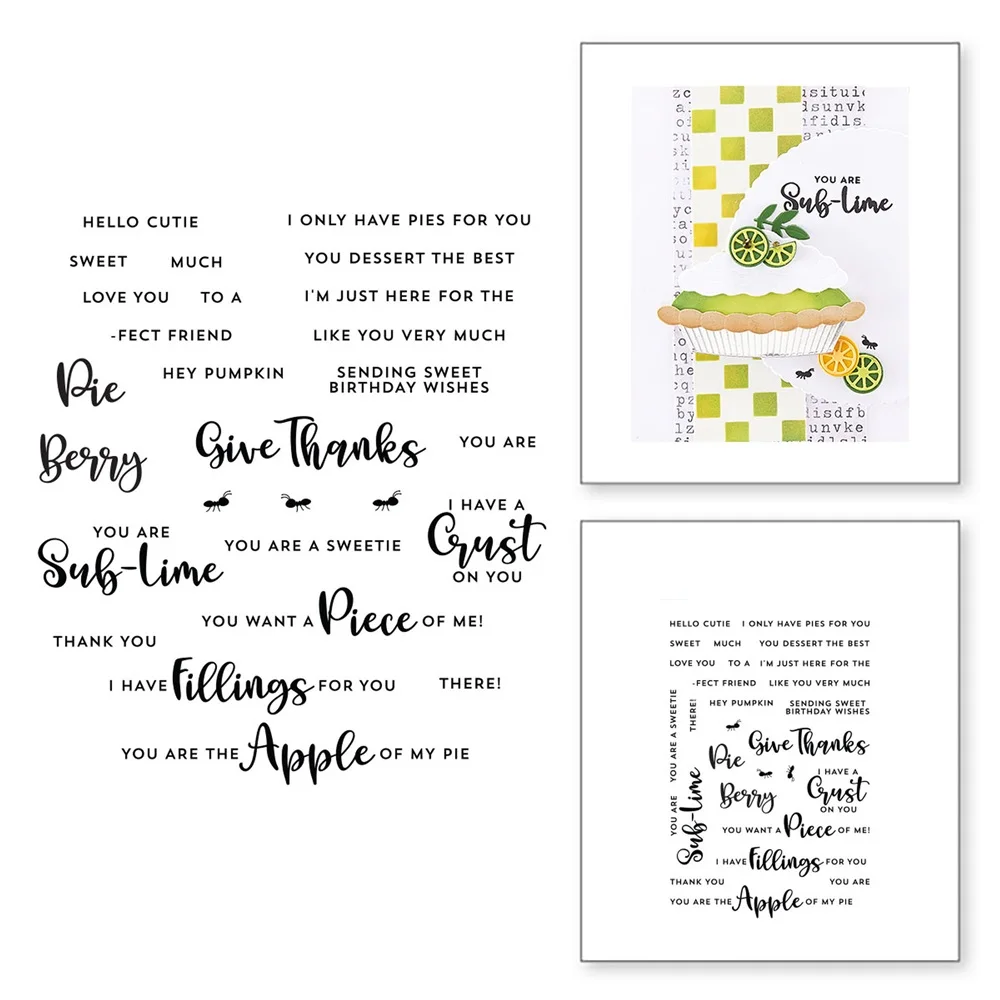 HELLO CUTIE
I ONLY HAVE PIES FOR YOU
SWEET
MUCH
YOU DESSERT THE BEST
LOVE YOU
TO A
I'M JUST HERE FOR THE
-FECT FRIEND
LIKE YOU VERY MUCH
Pie
HEY PUMPKIN
SENDING SWEET
BIRTHDAY WISHES
Berry
Give Thanks
YOU ARE
YOU ARE
Sub-lime
YOU ARE A SWEETIE
I HAVE A
Crust
ON YOU
YOU WANT A Piece OF ME!
THANK YOU
I HAVE Fillings FOR YOU
THERE!
YOU ARE THE Apple OF MY PIE
YOU ARE
Sub-lime
HELLO CUTIE
I ONLY HAVE PIES FOR YOU
SWEET
MUCH
YOU DESSERT THE BEST
LOVE YOU
TO A
I'M JUST HERE FOR THE
-FECT FRIEND
LIKE YOU VERY MUCH
HEY PUMPKIN
SENDING SWEET
BIRTHDAY WISHES
YOU ARE A SWEETIE
THERE!
Give Thanks
Pie
Berry
I HAVE A
Crust
ON YOU
YOU ARE
Sub-lime
YOU WANT A Piece OF ME!
I HAVE Fillings FOR YOU
THANK YOU
YOU ARE
YOU ARE THE Apple OF MY PIE